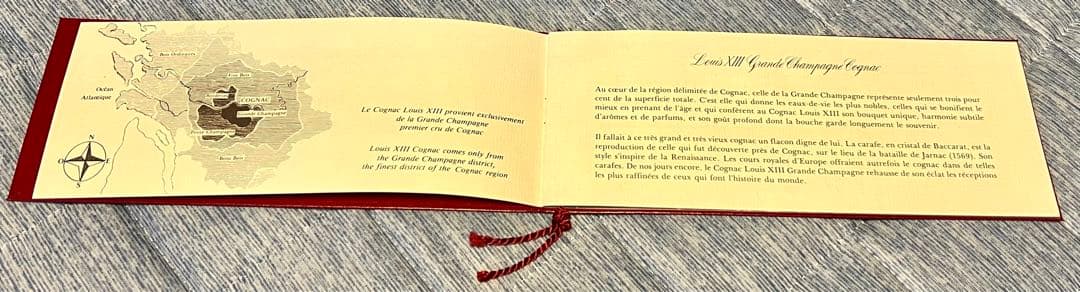 Bois Ordinaires
Fins Bois
Océan
Atlantique
COGNAC
Grande Champagne
Petite Champagne
Bons Bois
N
O
E
S
Le Cognac Louis XIII provient exclusivement
de la Grande Champagne
premier cru de Cognac
Louis XIII Cognac comes only from
the Grande Champagne district,
the finest district of the Cognac region
Louis XIII Grande Champagne Cognac
Au cœur de la région délimitée de Cognac, celle de la Grande Champagne représente seulement trois pour
cent de la superficie totale. C'est elle qui donne les eaux-de-vie les plus nobles, celles qui se bonifient le
mieux en prenant de l'âge et qui confèrent au Cognac Louis XIII son bouquet unique, harmonie subtile
d'arômes et de parfums, et son goût profond dont la bouche garde longuement le souvenir.
Il fallait à ce très grand et très vieux cognac un flacon digne de lui. La carafe, en cristal de Baccarat, est la
reproduction de celle qui fut découverte près de Cognac, sur le lieu de la bataille de Jarnac (1569). Son
style s'inspire de la Renaissance. Les cours royales d'Europe offraient autrefois le cognac dans de telles
carafes. De nos jours encore, le Cognac Louis XIII Grande Champagne rehausse de son éclat les réceptions
les plus raffinées de ceux qui font l'histoire du monde.